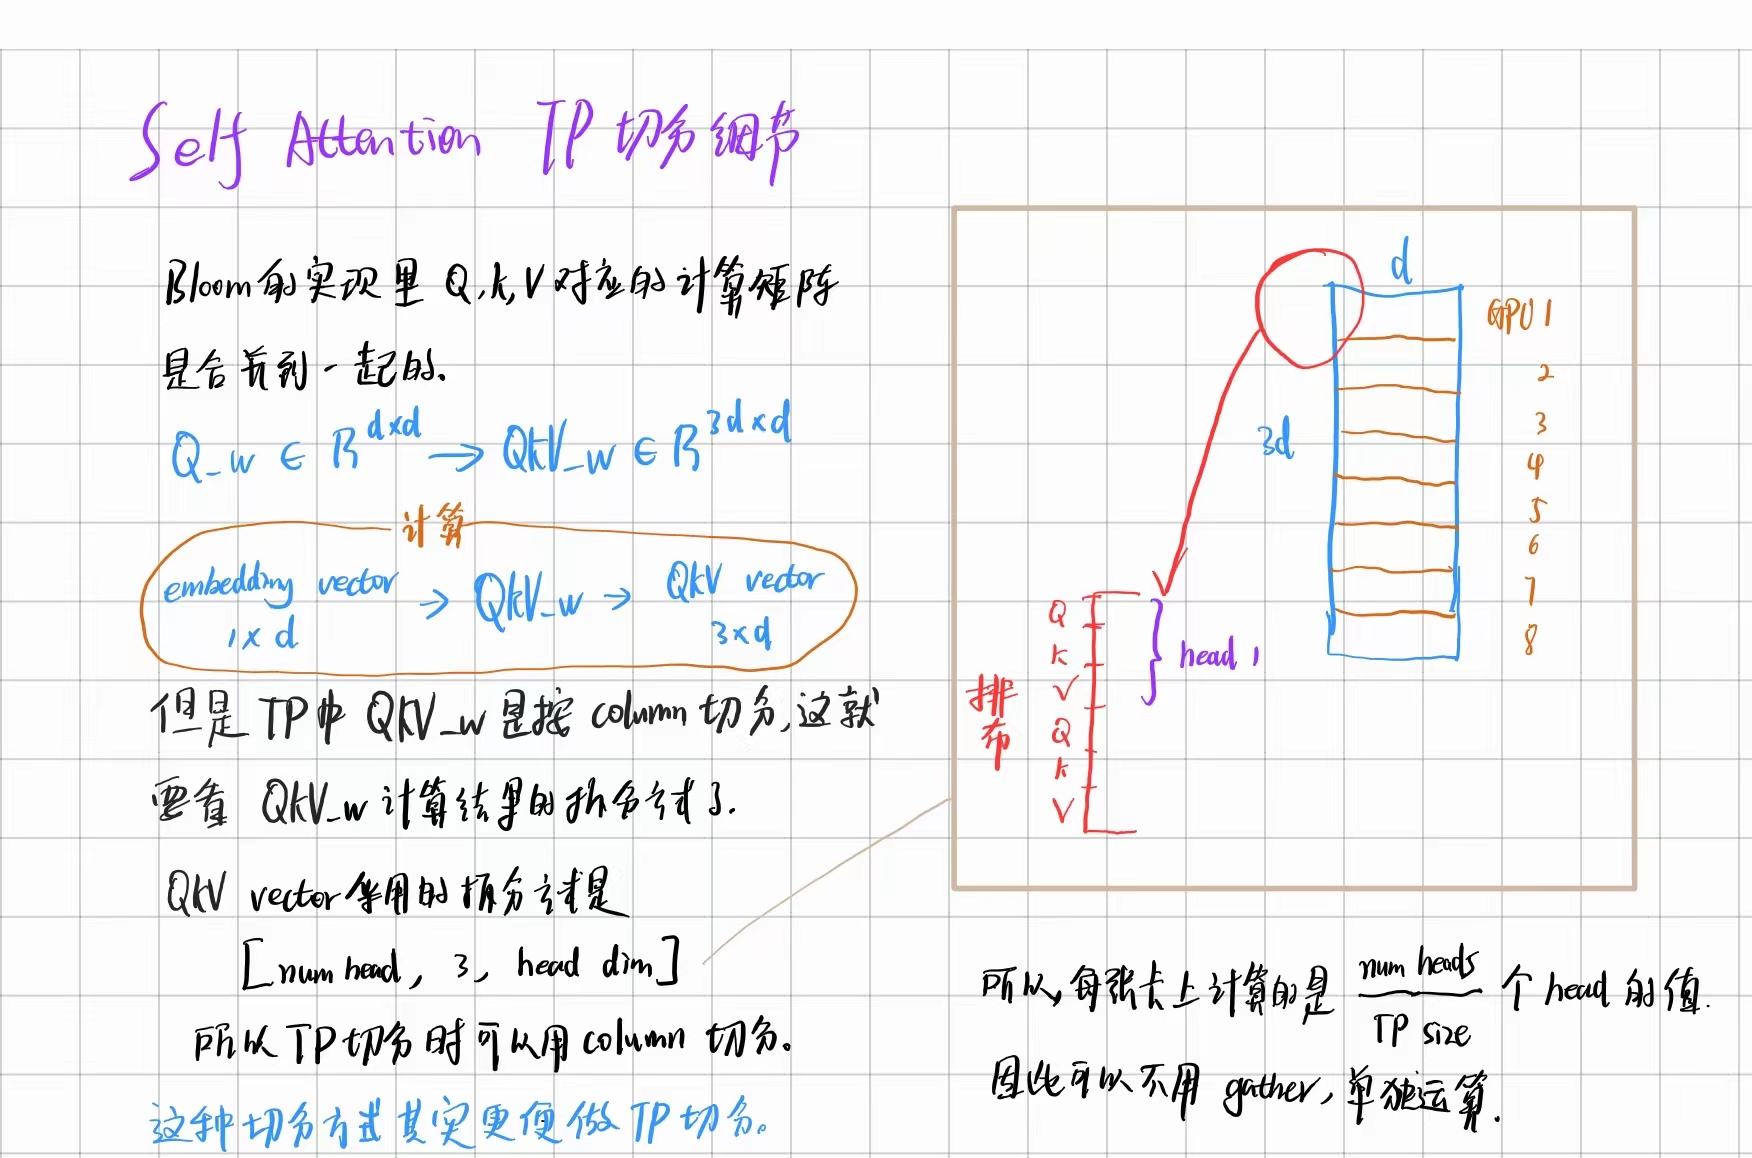 Self Attention TP 切分细节
Bloom的实现里 Q,k,V对应的计算矩阵
是合并到一起的.
Q_w ∈ R^{d×d} → QkV_w ∈ R^{3d×d}
计算
embedding vector → QkV_w → QkV vector
1×d
3×d
但是 TP中 QKV_w 是按 column 切分,这就
要看 QkV_w 计算结果的拆分方式了.
QkV vector 采用的拆分方式是
[num head, 3, head dim]
所以 TP 切分时可以用 column 切分.
这种切分方式其实更便做 TP 切分。
d
3d
GPU 1
2
3
4
5
6
7
8
排布
Q
k
V
Q
k
V
head 1
所以,每张卡上计算的是 num heads / TP size 个 head 的值.
因此可以不用 gather,单独运算.